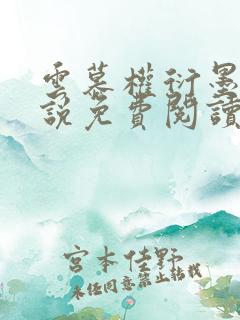 雲慕權衍墨
說免費閱讀
宮本佳野
未任同意禁止轉載